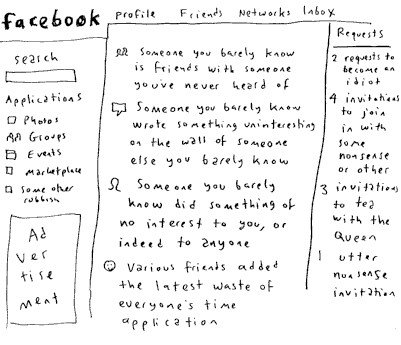 facebook
Profile Friends Networks Inbox
search
Applications
Photos
Groups
Events
marketplace
some other
rubbish
Ad
ver
tise
ment
Someone you barely know
is friends with someone
you've never heard of
Someone you barely know
wrote something uninteresting
on the wall of someone
else you barely know
Someone you barely
know did something of
no interest to you, or
indeed to anyone
Various friends added
the latest waste of
everyone's time
application
Requests
2 requests to
become an
idiot
4 invitations
to join
in with
some
nonsense
or other
3 invitations
to tea
with the
Queen
1 utter
nonsense
invitation